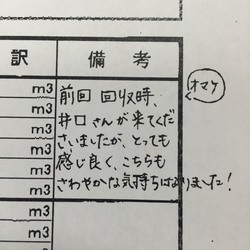 訳
備考
m3
m3
m3
m3
m3
m3
m3
前回 回収時、
井口さんが来てくだ
さいましたが、とっても
感じ良く、こちらも
さわやかな気持ちになりました!
オマケ